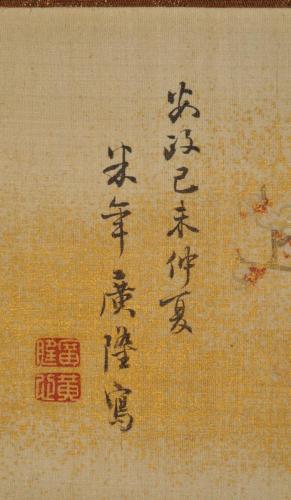 安政己未仲夏
米年廣隆寫